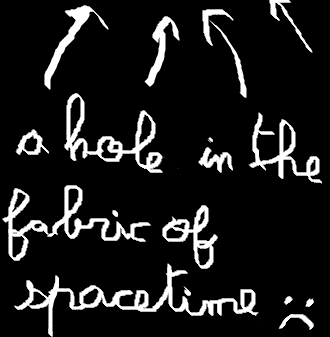 a hole in the
fabric of
spacetime :(